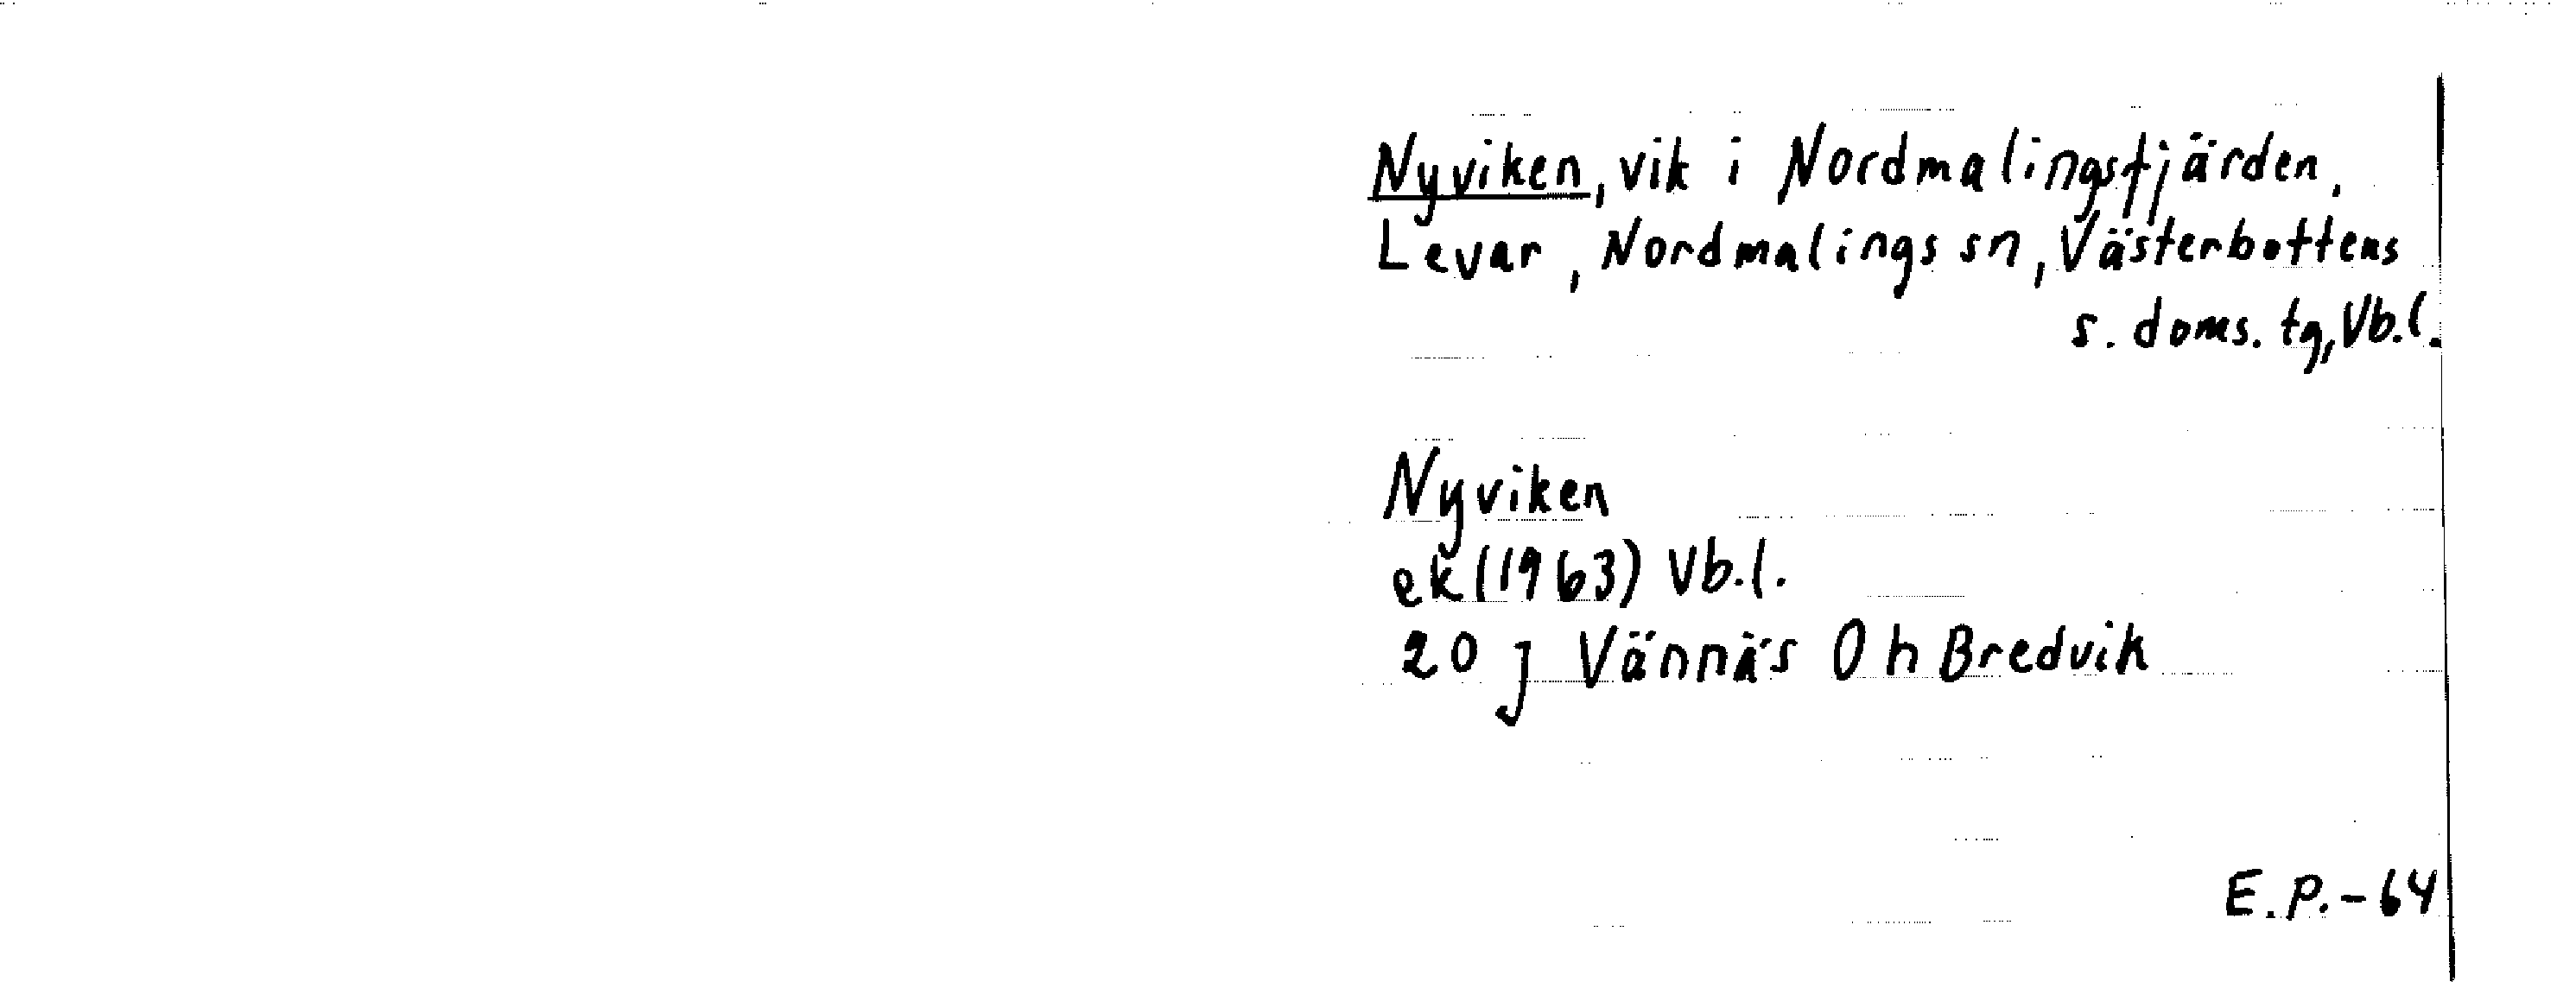 Nyviken, vik i Nordmalingsfjärden,
Levar, Nordmalings sn, Västerbottens
s. doms. tg, Vb.l.
Nyviken
ek (1963) Vb.l.
20 J Vännäs 0 h Bredvik
E.P.-64